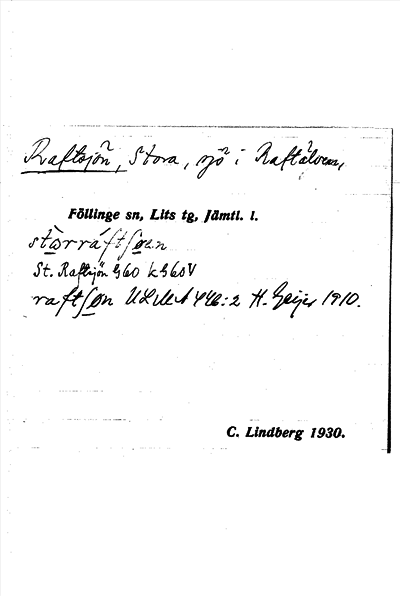 Raftsjön, Stora, sjö i Raftälven,
Föllinge sn, Lits tg, Jämtl. l.
stòrráftʃøen
St. Raftsjön G60 kG60V
raftʃøn ULMA 446:2 H. Geijer 1910.
C. Lindberg 1930.